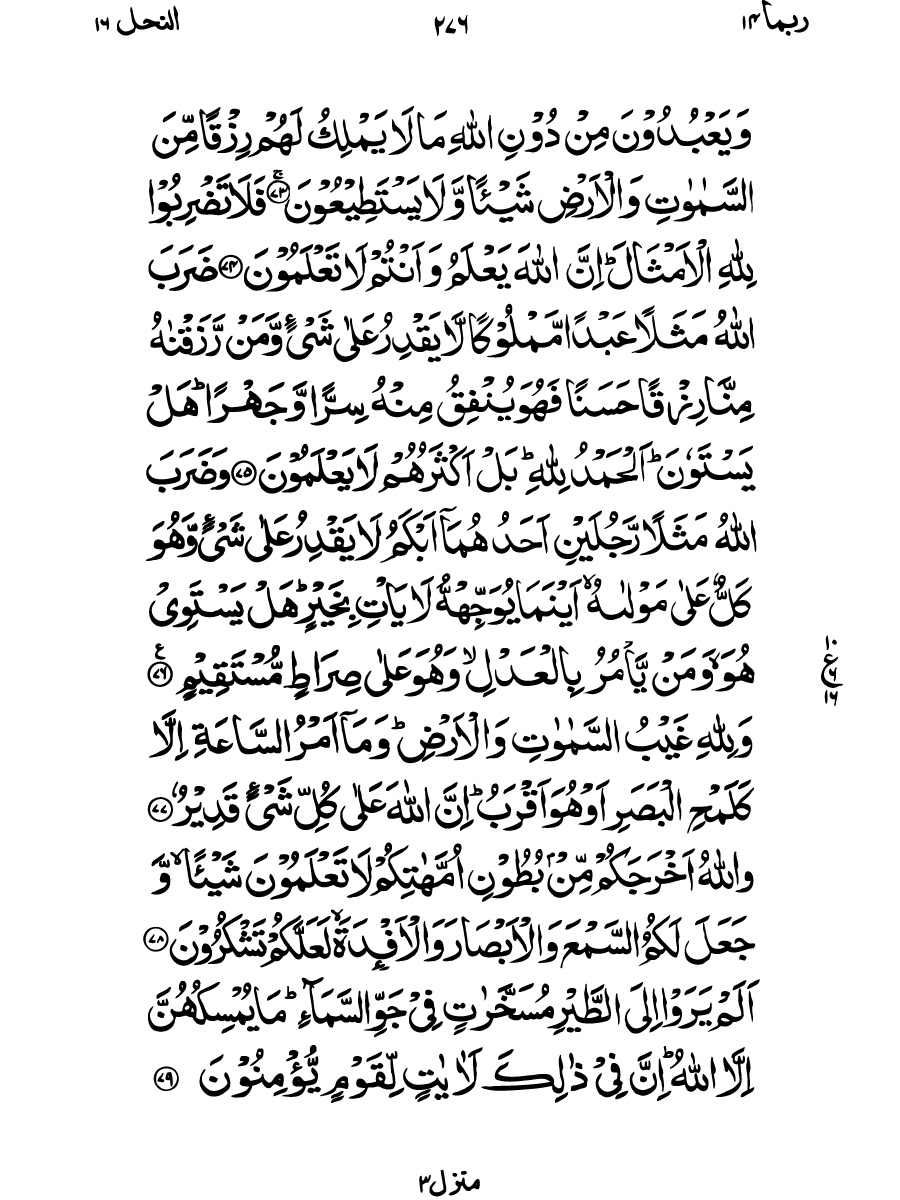 ربما ۱۴ ۲۷۶ النحل ۱۶
وَيَعْبُدُوْنَ مِنْ دُوْنِ اللّٰهِ مَا لَا يَمْلِكُ لَهُمْ رِزْقًا مِّنَ
السَّمٰوٰتِ وَالْاَرْضِ شَيْـًٔا وَّلَا يَسْتَطِيْعُوْنَ ۚ۝۷۳ فَلَا تَضْرِبُوْا
لِلّٰهِ الْاَمْثَالَ ؕ اِنَّ اللّٰهَ يَعْلَمُ وَاَنْتُمْ لَا تَعْلَمُوْنَ ۝۷۴ ضَرَبَ
اللّٰهُ مَثَلًا عَبْدًا مَّمْلُوْكًا لَّا يَقْدِرُ عَلٰى شَىْءٍ وَّمَنْ رَّزَقْنٰهُ
مِنَّا رِزْقًا حَسَنًا فَهُوَ يُنْفِقُ مِنْهُ سِرًّا وَّجَهْرًا ؕ هَلْ
يَسْتَوٗنَ ؕ اَلْحَمْدُ لِلّٰهِ ؕ بَلْ اَكْثَرُهُمْ لَا يَعْلَمُوْنَ ۝۷۵ وَضَرَبَ
اللّٰهُ مَثَلًا رَّجُلَيْنِ اَحَدُهُمَاۤ اَبْكَمُ لَا يَقْدِرُ عَلٰى شَىْءٍ وَّهُوَ
كَلٌّ عَلٰى مَوْلٰىهُ ۙ اَيْنَمَا يُوَجِّهْهُّ لَا يَاْتِ بِخَيْرٍ ؕ هَلْ يَسْتَوِىْ
هُوَ ۙ وَمَنْ يَّاْمُرُ بِالْعَدْلِ ۙ وَهُوَ عَلٰى صِرَاطٍ مُّسْتَقِيْمٍ ۝۷۶ ع
۱۰ ع ۶ ۱۶
وَلِلّٰهِ غَيْبُ السَّمٰوٰتِ وَالْاَرْضِ ؕ وَمَاۤ اَمْرُ السَّاعَةِ اِلَّا
كَلَمْحِ الْبَصَرِ اَوْ هُوَ اَقْرَبُ ؕ اِنَّ اللّٰهَ عَلٰى كُلِّ شَىْءٍ قَدِيْرٌ ۝۷۷
وَاللّٰهُ اَخْرَجَكُمْ مِّنْۢ بُطُوْنِ اُمَّهٰتِكُمْ لَا تَعْلَمُوْنَ شَيْـًٔا ۙ وَّ
جَعَلَ لَكُمُ السَّمْعَ وَالْاَبْصَارَ وَالْاَفْـِٕدَةَ ۙ لَعَلَّكُمْ تَشْكُرُوْنَ ۝۷۸
اَلَمْ يَرَوْا اِلَى الطَّيْرِ مُسَخَّرٰتٍ فِىْ جَوِّ السَّمَآءِ ؕ مَا يُمْسِكُهُنَّ
اِلَّا اللّٰهُ ؕ اِنَّ فِىْ ذٰلِكَ لَاٰيٰتٍ لِّقَوْمٍ يُّؤْمِنُوْنَ ۝۷۹
منزل ۳